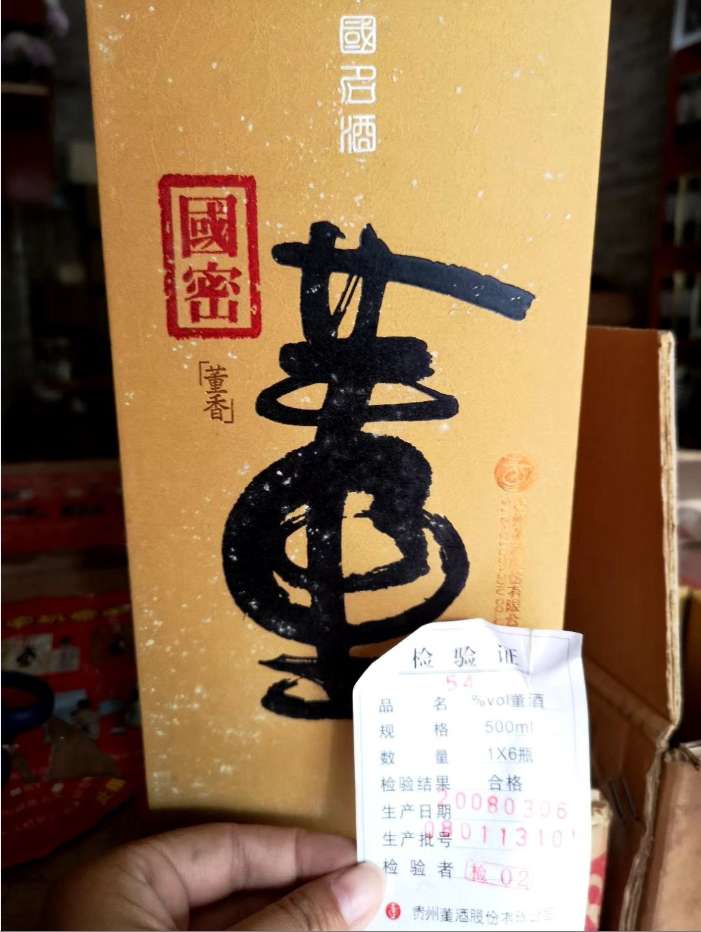 國名酒
國密
「董香」
董
检验证
54
品名 %vol董酒
规格 500ml
数量 1X6瓶
检验结果 合格
生产日期 20080306
生产批号 080113101
检验者 检02
贵州董酒股份